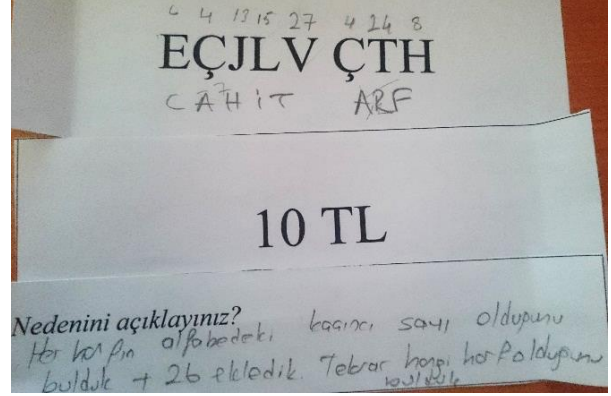 6 4 13 15 27 4 24 8
EÇJLV ÇTH
CAHİT ARF
10 TL
Nedenini açıklayınız?
Her harfin alfabedeki kaçıncı sayı olduğunu
bulduk + 26 ekledik. Tekrar hangi harf olduğunu
bulduk